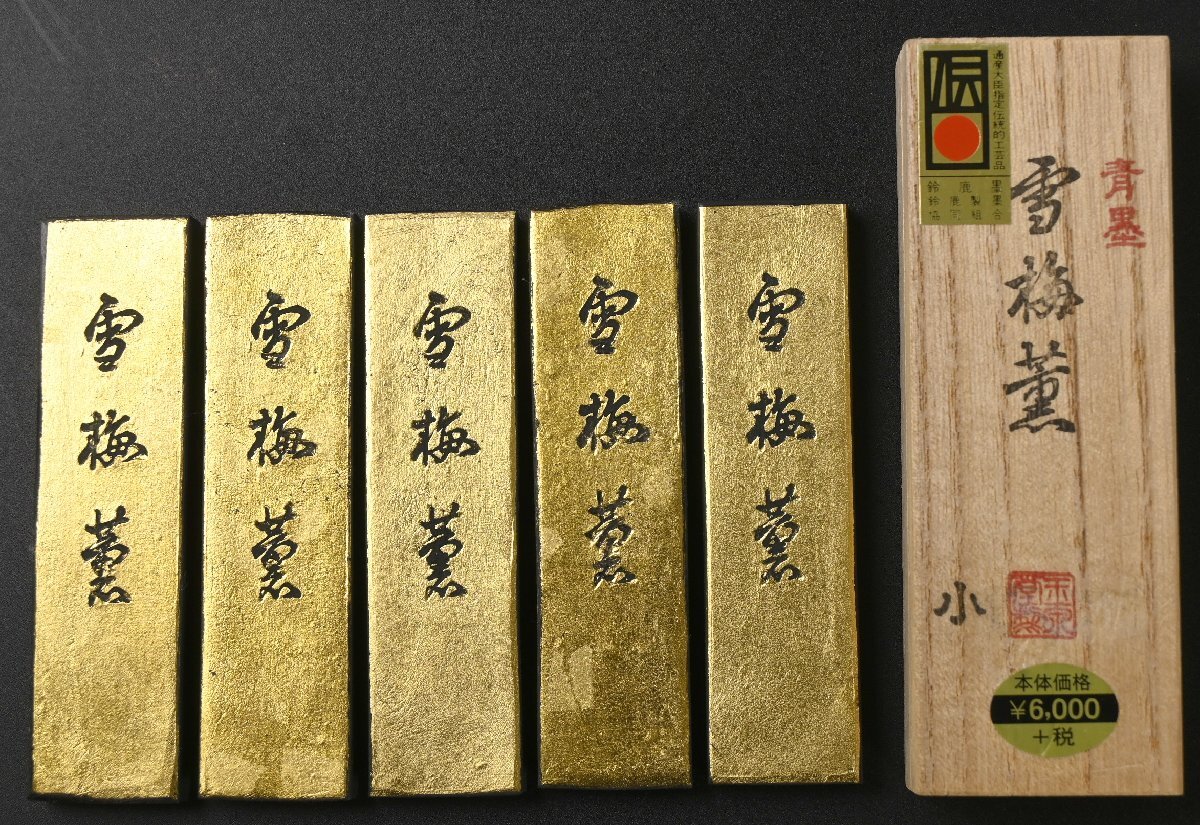 雪梅薫
雪梅薫
雪梅薫
雪梅薫
雪梅薫
伝
通産大臣指定伝統的工芸品
鈴鹿墨
鈴鹿製墨
協同組合
青墨
雪梅薫
小
本体価格
¥6,000
+税